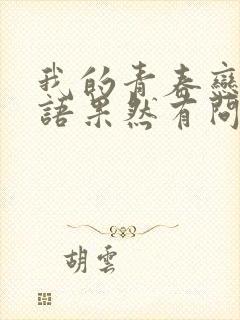 我的青春戀
語果然有問
胡雲